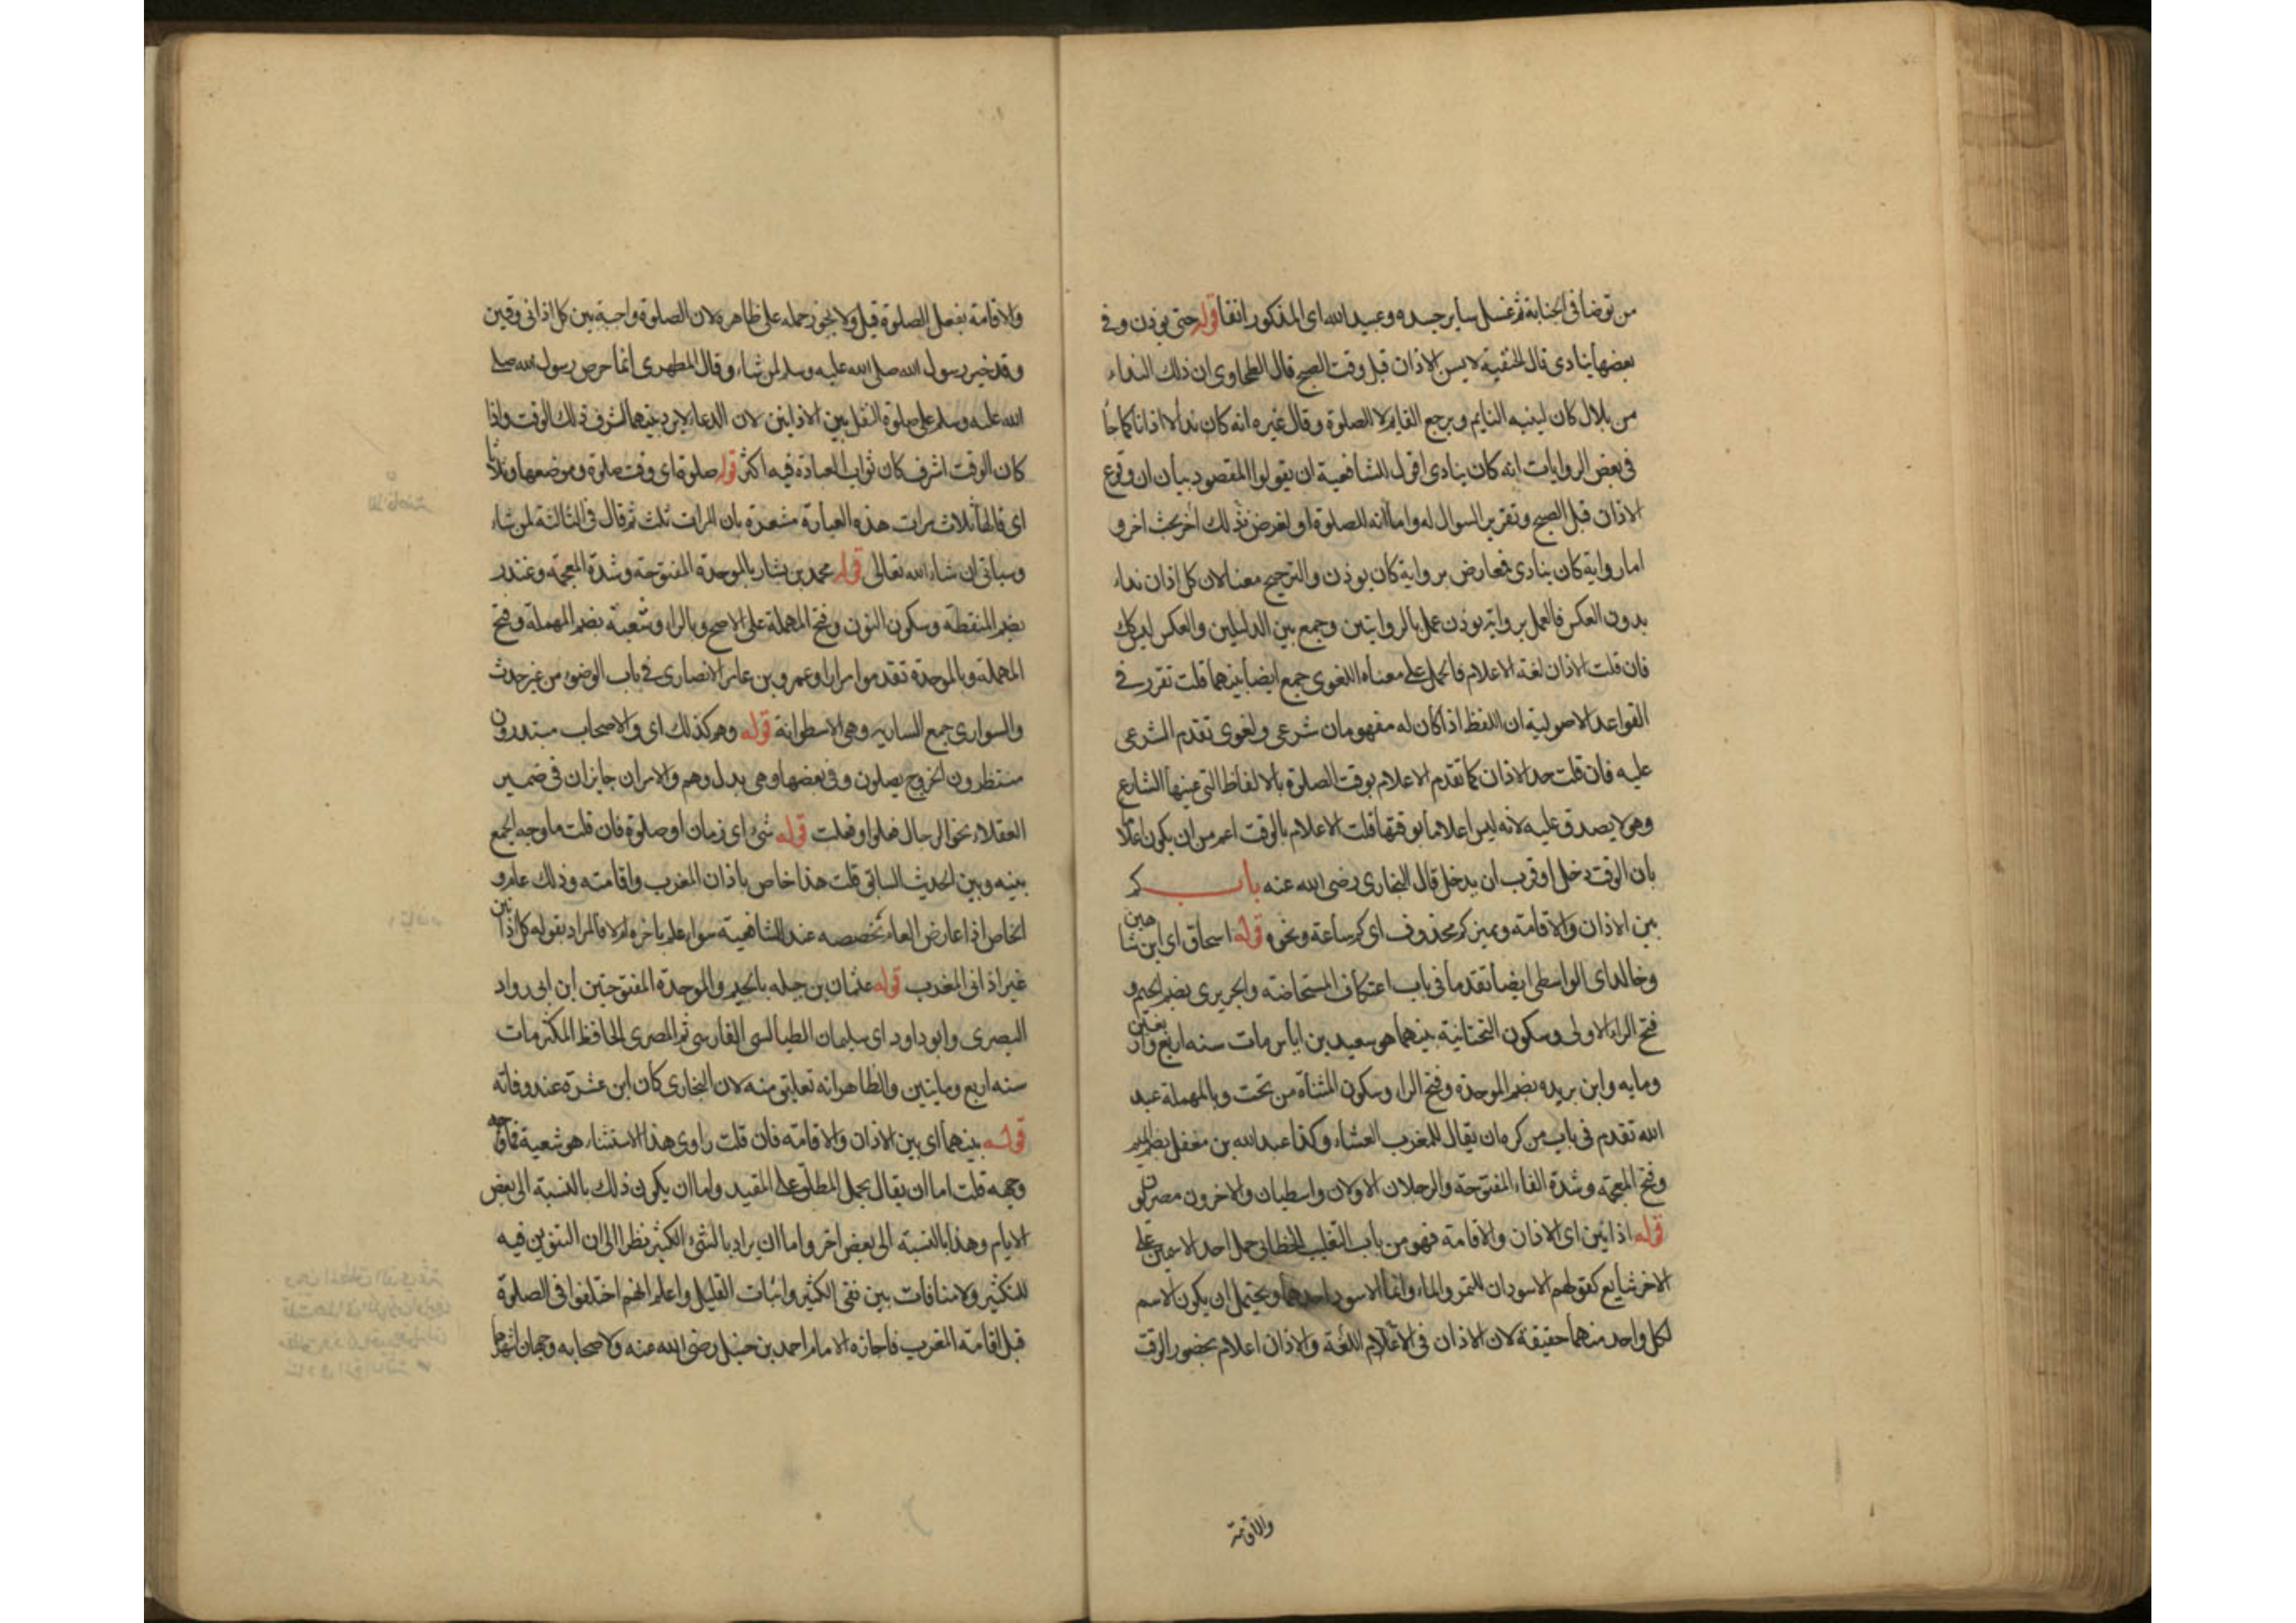 من توضا فى الجنابة ثم غسل ساير جسده وعبد الله اى المذكور انفا قوله حتى يوذن وفى
بعضها ينادى قال الحنفية لا يسن الاذان قبل وقت الصبح قال الطحاوى ان ذلك النداء
من بلال كان لينبه النايم ويرجع القايم لا للصلوة وقال غيره انه كان نداء لا اذانا كما جا
فى بعض الروايات انه كان ينادى اقول للشافعية ان يقولوا المقصود بيان ان وقوع
الاذان قبل الصبح وتقرير السوال له واما انه للصلوة او لغرض فذلك اخر بحث اخر و
اما رواية كان ينادى فمعارض برواية كان يوذن والترجيح معنا لان كل اذان نداء
بدون العكس فالعمل برواية يوذن عمل بالروايتين وجمع بين الدليلين والعكس ليس كك
فان قلت الاذان لغة الاعلام فالحمل على معناه اللغوى جمع ايضا بينهما قلت تقرر فى
القواعد الاصولية ان اللفظ اذا كان له مفهومان شرعى ولغوى تقدم الشرعى
عليه فان قلت حد الاذان كما تقدم الاعلام بوقت الصلوة بالالفاظ التى عينها الشارع
وهو لا يصدق عليه لانه ليس اعلاما بوقتها قلت الاعلام بالوقت اعم من ان يكون اعلاما
بان الوقت دخل او قرب ان يدخل قال البخارى رضى الله عنه باب كم
بين الاذان والاقامة ومميز كم محذوف اى كم ساعة ونحوه قوله اسحاق اى ابن شاهين
وخالد اى الواسطى ايضا تقدما فى باب اعتكاف المستحاضة والجريرى بضم الجيم و
فتح الراء الاولى وسكون التحتانية بينهما هو سعيد بن اياس مات سنه اربع واربعين
ومايه وابن بريده بضم الموحدة وفتح الرا وسكون المثناة من تحت وبالمهملة عبد
الله تقدم فى باب من كره ان يقال للمغرب العشاء وكذا عبد الله بن مغفل بضم الميم
وفتح المعجمة وشدة الفاء المفتوحة والرجلان الاولان واسطيان والاخرون مصريون
قوله اذانين اى الاذان والاقامة فهو من باب التغليب الخطابى حمل احد الاسمين على
الاخر شايع كقولهم الاسودان للتمر والماء وانما الاسود احدهما ويحتمل ان يكون الاسم
لكل واحد منهما حقيقة لان الاذان فى اللغة الاعلام والاذان اعلام بحضور الوقت
والاقامة
والاقامة بفعل الصلوة قيل ولا يجوز حمله على ظاهره لان الصلوة واجبة بين كل اذانى وقتين
وقد خير رسول الله صلى الله عليه وسلم لمن شاء وقال المظهرى انما حرض رسول الله صلى
الله عليه وسلم على صلوة النفل بين الاذانين لان الدعاء لا يرد بينهما لشرف ذلك الوقت واذا
كان الوقت اشرف كان ثواب العبادة فيه اكثر قوله صلوة اى وقت صلوة وموضعها وثلاثا
اى قالها ثلاث مرات هذه العبارة مشعرة بان المرات ثلث ثم قال فى الثالثة لمن شاء
وسياتى ان شاء الله تعالى قوله محمد بن بشار بالموحدة المفتوحة وشدة المعجمة وغندر
بضم المنقطة وسكون النون وفتح المهملة على الاصح وبالراء وشعبة بضم المهملة وفتح
المهملة وبالموحدة تقدموا مرارا وعمرو بن عامر الانصارى فى باب الوضوء من غير حدث
والسوارى جمع السارية وهى الاسطوانة قوله وهم كذلك اى والاصحاب مبتدرون
منتظرون لخروج يصلون وفى بعضها وهى بدل وهم والامران جايزان فى ضمير
العقلاء نحو الرجال فعلوا وفعلت قوله شىء اى زمان او صلوة فان قلت ما وجه الجمع
بينه وبين الحديث السابق قلت هذا خاص باذان المغرب واقامته وذلك عام و
الخاص اذا عارض العام تخصصه عند الشافعية سواء علم تاخره ام لا فالمراد بقوله كل اذانين
غير اذانى المغرب قوله عثمان بن جبله بالجيم والموحدة المفتوحتين ابن ابى رواد
البصرى وابو داود اى سليمان الطيالسى الفارسى ثم البصرى الحافظ المكثر مات
سنه اربع ومايتين والظاهر انه تعليق منه لان البخارى كان ابن عشرة عند وفاته
قوله بينهما اى بين الاذان والاقامة فان قلت راوى هذا الاستثناء هو شعبة فما
وجهه قلت اما ان يقال يحمل المطلق على المقيد واما ان يكون ذلك بالنسبة الى بعض
الايام وهذا بالنسبة الى بعض اخر واما ان يراد بالشىء الكثير نظرا الى ان التنوين فيه
للتكثير ولا منافات بين نفى الكثير واثبات القليل واعلم انهم اختلفوا فى الصلوة
قبل اقامة المغرب فاجازه الامام احمد بن حنبل رضى الله عنه ولاصحابه وجهان اشهرهما